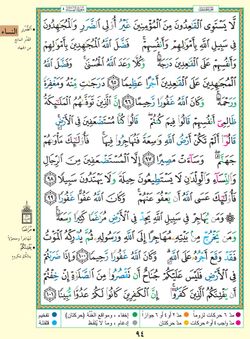 لَّا يَسْتَوِى ٱلْقَـٰعِدُونَ مِنَ ٱلْمُؤْمِنِينَ غَيْرُ أُو۟لِى ٱلضَّرَرِ وَٱلْمُجَـٰهِدُونَ
فِى سَبِيلِ ٱللَّهِ بِأَمْوَٰلِهِمْ وَأَنفُسِهِمْ ۚ فَضَّلَ ٱللَّهُ ٱلْمُجَـٰهِدِينَ بِأَمْوَٰلِهِمْ
وَأَنفُسِهِمْ عَلَى ٱلْقَـٰعِدِينَ دَرَجَةً ۚ وَكُلًّا وَعَدَ ٱللَّهُ ٱلْحُسْنَىٰ ۚ وَفَضَّلَ ٱللَّهُ
ٱلْمُجَـٰهِدِينَ عَلَى ٱلْقَـٰعِدِينَ أَجْرًا عَظِيمًا ٩٥ دَرَجَـٰتٍ مِّنْهُ وَمَغْفِرَةً
وَرَحْمَةً ۚ وَكَانَ ٱللَّهُ غَفُورًا رَّحِيمًا ٩٦ إِنَّ ٱلَّذِينَ تَوَفَّىٰهُمُ ٱلْمَلَـٰٓئِكَةُ
ظَالِمِىٓ أَنفُسِهِمْ قَالُوا۟ فِيمَ كُنتُمْ ۖ قَالُوا۟ كُنَّا مُسْتَضْعَفِينَ فِى ٱلْأَرْضِ ۚ
قَالُوٓا۟ أَلَمْ تَكُنْ أَرْضُ ٱللَّهِ وَٰسِعَةً فَتُهَاجِرُوا۟ فِيهَا ۚ فَأُو۟لَـٰٓئِكَ مَأْوَىٰهُمْ
جَهَنَّمُ ۖ وَسَآءَتْ مَصِيرًا ٩٧ إِلَّا ٱلْمُسْتَضْعَفِينَ مِنَ ٱلرِّجَالِ
وَٱلنِّسَآءِ وَٱلْوِلْدَٰنِ لَا يَسْتَطِيعُونَ حِيلَةً وَلَا يَهْتَدُونَ سَبِيلًا ٩٨
فَأُو۟لَـٰٓئِكَ عَسَى ٱللَّهُ أَن يَعْفُوَ عَنْهُمْ ۚ وَكَانَ ٱللَّهُ عَفُوًّا غَفُورًا ٩٩
وَمَن يُهَاجِرْ فِى سَبِيلِ ٱللَّهِ يَجِدْ فِى ٱلْأَرْضِ مُرَٰغَمًا كَثِيرًا وَسَعَةً ۚ
وَمَن يَخْرُجْ مِنۢ بَيْتِهِۦ مُهَاجِرًا إِلَى ٱللَّهِ وَرَسُولِهِۦ ثُمَّ يُدْرِكْهُ ٱلْمَوْتُ
فَقَدْ وَقَعَ أَجْرُهُۥ عَلَى ٱللَّهِ ۗ وَكَانَ ٱللَّهُ غَفُورًا رَّحِيمًا ١٠٠ وَإِذَا ضَرَبْتُمْ
فِى ٱلْأَرْضِ فَلَيْسَ عَلَيْكُمْ جُنَاحٌ أَن تَقْصُرُوا۟ مِنَ ٱلصَّلَوٰةِ إِنْ خِفْتُمْ
أَن يَفْتِنَكُمُ ٱلَّذِينَ كَفَرُوٓا۟ ۚ إِنَّ ٱلْكَـٰفِرِينَ كَانُوا۟ لَكُمْ عَدُوًّا مُّبِينًا ١٠١
٩٤